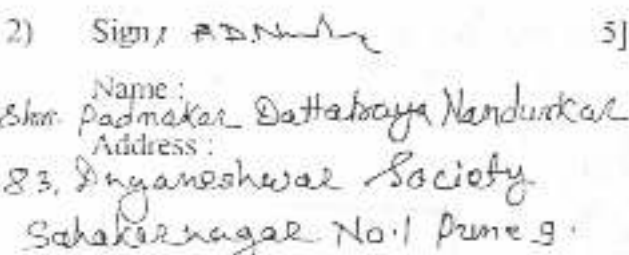 2) Sign: P.D.Nandurkar 5]
Name :
Shri. Padmakar Dattatraya Nandurkar
Address :
83, Dnyaneshwar Society
Sahakarnagar No.1 Pune 9.